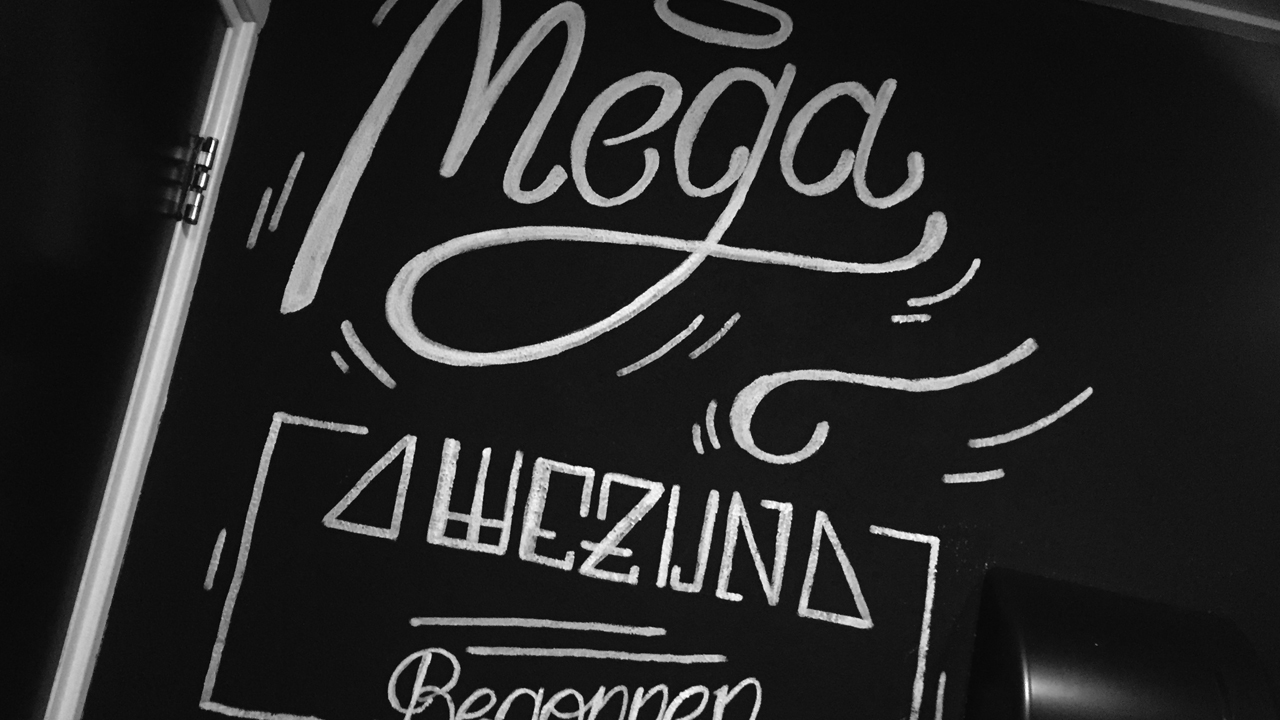 Mega
WEZIJN
Begonnen